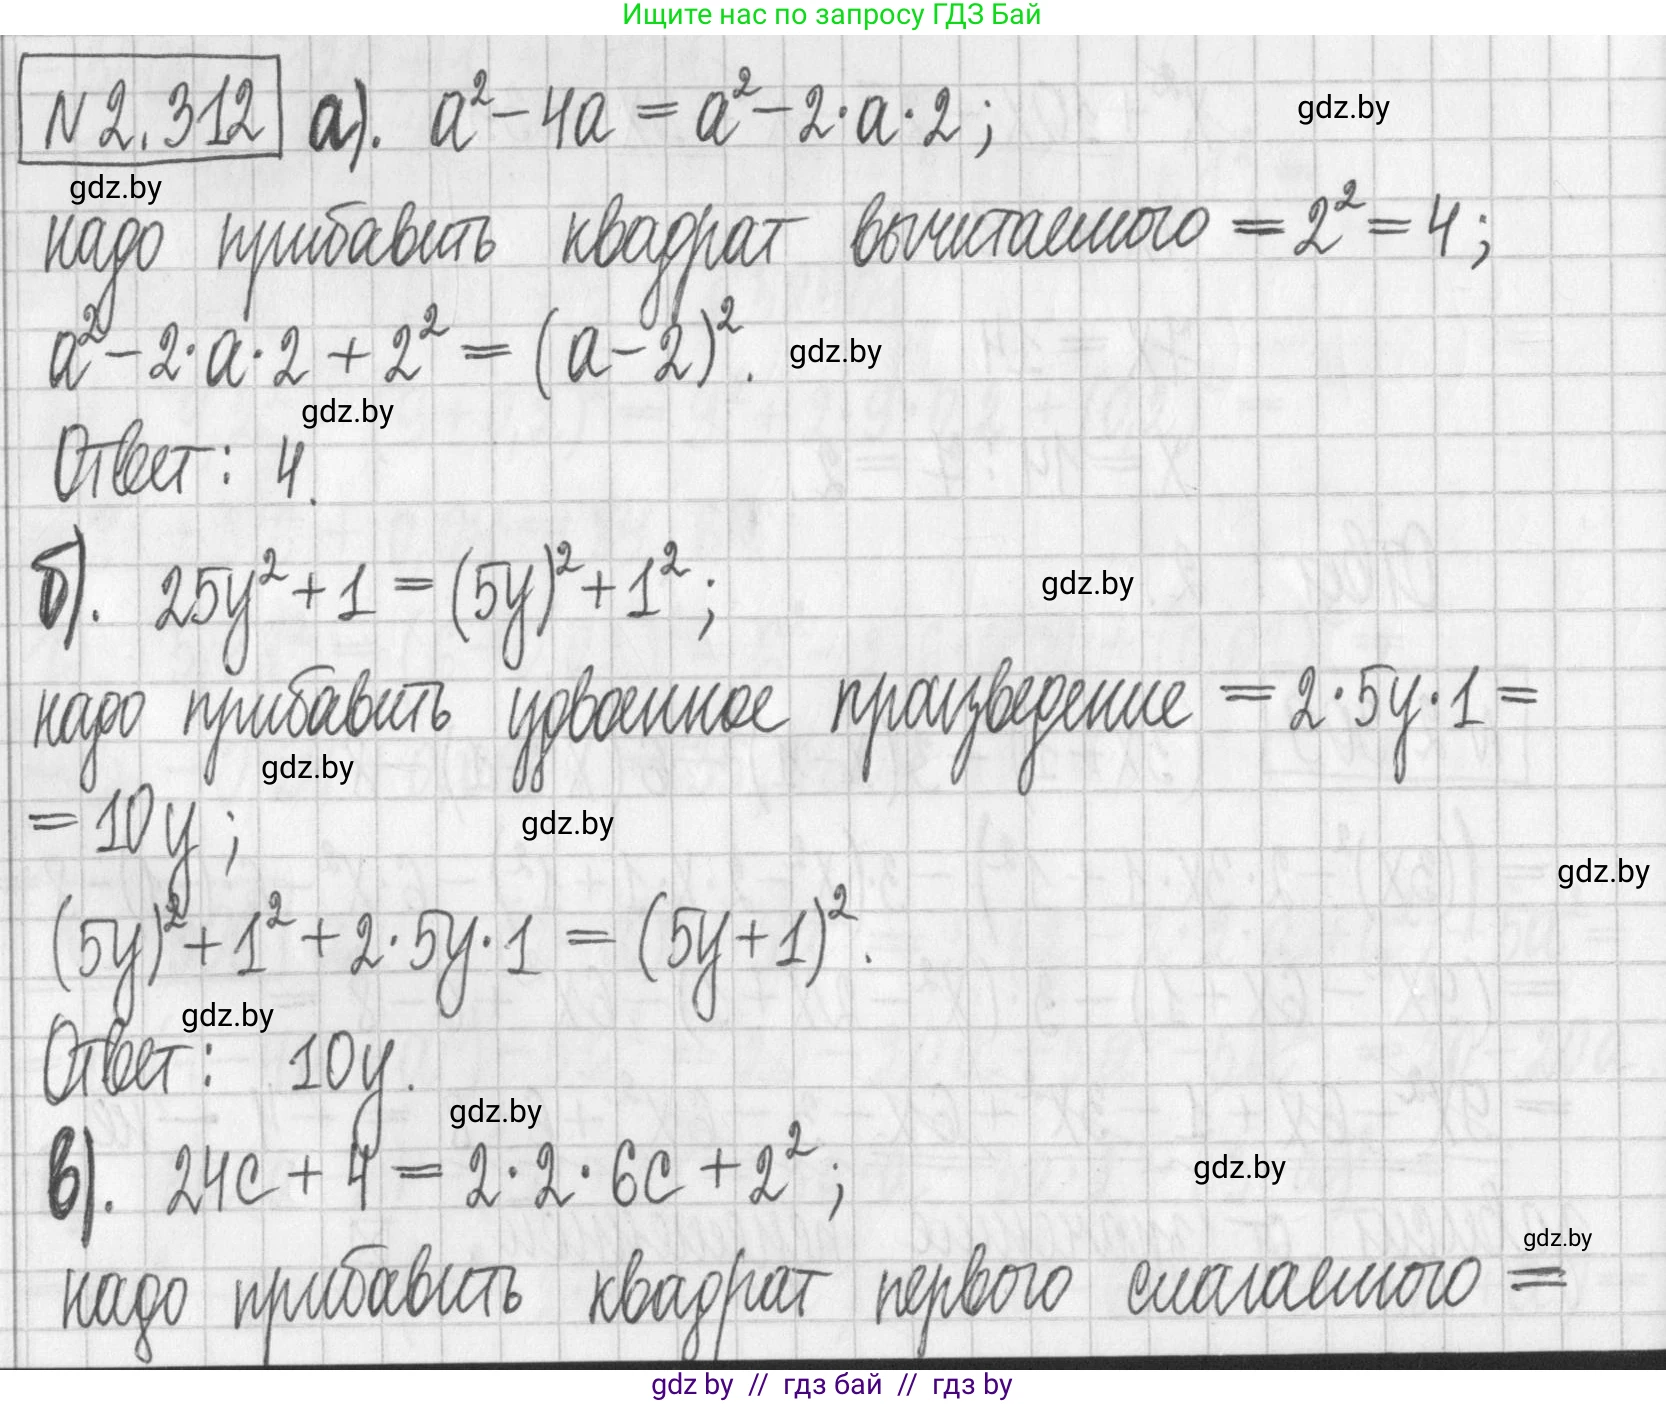 Ищите нас по запросу ГДЗ Бай
N 2.312 а). a² - 4a = a² - 2·a·2;
gdz.by
gdz.by
надо прибавить квадрат вычитаемого = 2² = 4;
a² - 2·a·2 + 2² = (a - 2)².
gdz.by
gdz.by
Ответ: 4.
б). 25y² + 1 = (5y)² + 1²;
gdz.by
надо прибавить удвоенное произведение = 2·5y·1 =
gdz.by
= 10y;
gdz.by
gdz.by
(5y)² + 1² + 2·5y·1 = (5y + 1)².
gdz.by
Ответ: 10y.
gdz.by
в). 24c + 4 = 2·2·6c + 2²;
gdz.by
gdz.by
надо прибавить квадрат первого слагаемого =
gdz by // гдз бай // гдз by